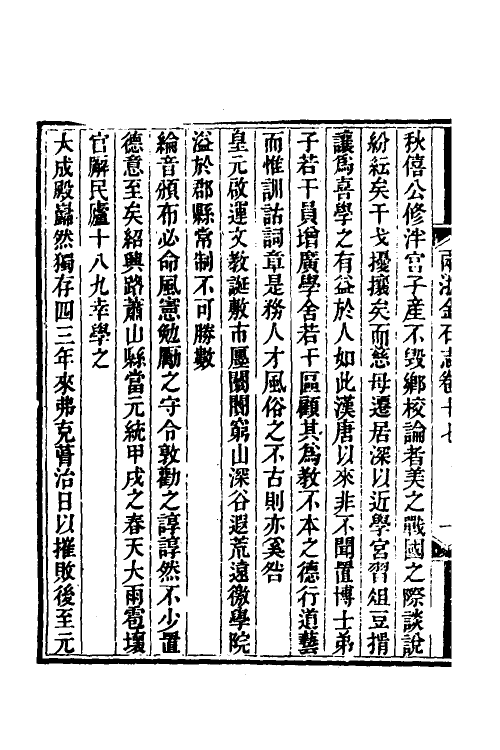 兩浙金石志卷十七
一
秋僖公修泮宮子產不毀鄉校論者美之戰國之際談說
紛紜矣干戈擾攘矣而慈母遷居深以近學宮習俎豆揖
讓爲喜學之有益於人如此漢唐以來非不聞置博士弟
子若干員增廣學舍若干區顧其爲教不本之德行道藝
而惟訓詁詞章是務人才風俗之不古則亦奚咎
皇元啟運文教誕敷市廛闤闠窮山深谷遐荒遠徼學院
溢於郡縣常制不可勝數
綸音頒布必命風憲勉勵之守令敦勸之諄諄然不少置
德意至矣紹興路蕭山縣當元統甲戌之春天大雨雹壞
官廨民廬十八九幸學之
大成殿巋然獨存四三年來弗克葺治日以摧敗後至元